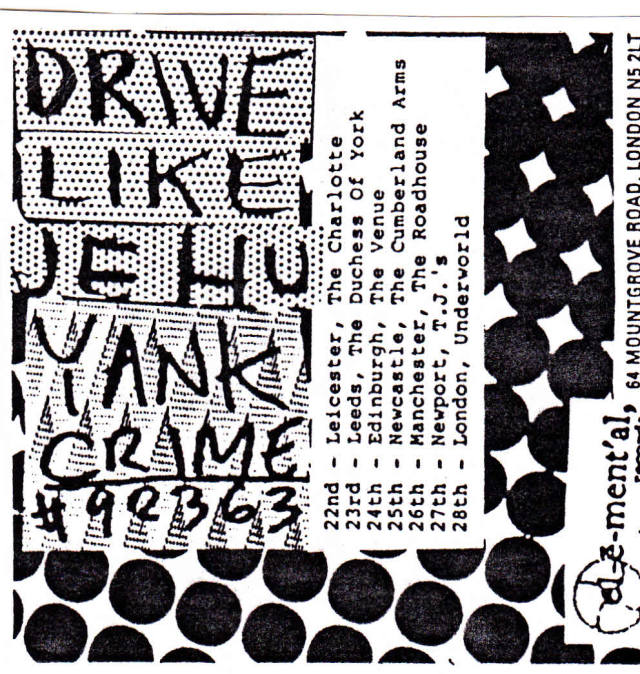 DRIVE
LIKE
JEHU
YANK
CRIME
#92363
22nd - Leicester, The Charlotte
23rd - Leeds, The Duchess Of York
24th - Edinburgh, The Venue
25th - Newcastle, The Cumberland Arms
26th - Manchester, The Roadhouse
27th - Newport, T.J.'s
28th - London, Underworld
el·ĕ-ment'al,
64 MOUNTGROVE ROAD, LONDON N5 2LT